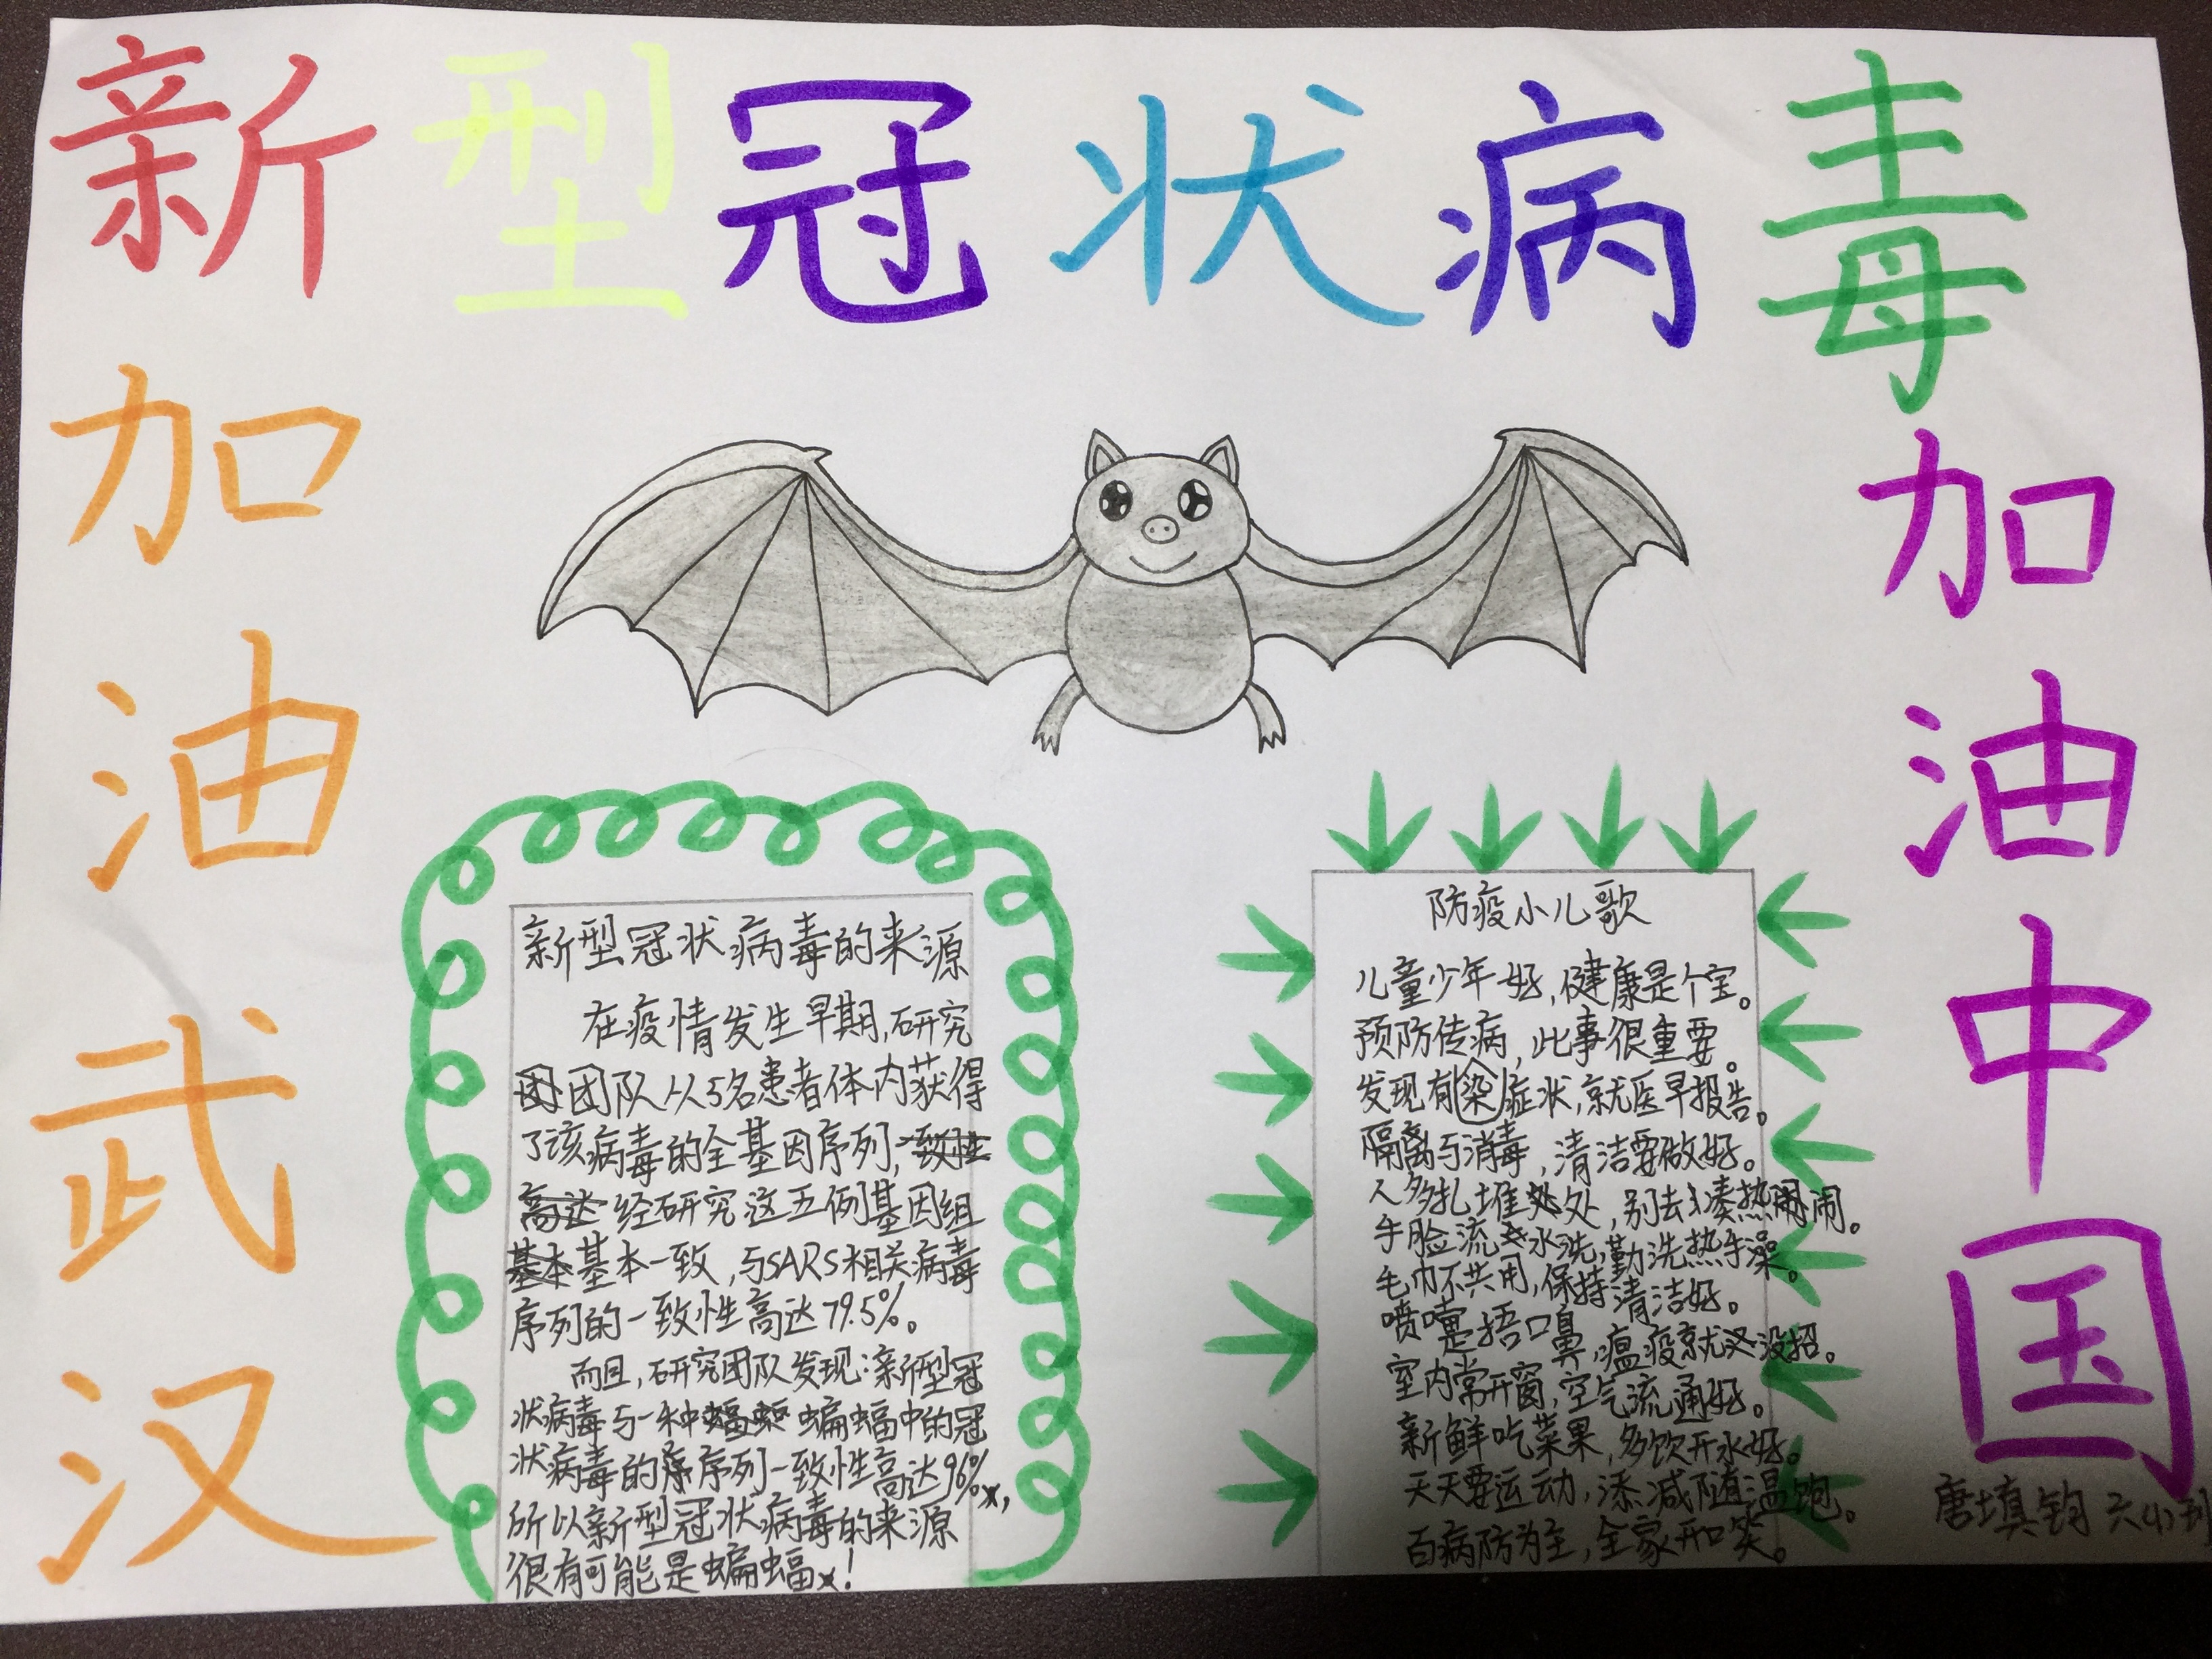 新型冠状病毒
加油武汉
加油中国
新型冠状病毒的来源
在疫情发生早期,研究
团队从5名患者体内获得
了该病毒的全基因序列,
经研究这五例基因组
基本一致,与SARS相关病毒
序列的一致性高达79.5%。
而且,研究团队发现:新型冠
状病毒与一种蝙蝠中的冠
状病毒的序列一致性高达96%,
所以新型冠状病毒的来源
很有可能是蝙蝠!
防疫小儿歌
儿童少年好,健康是个宝。
预防传病,此事很重要。
发现有染症状,就医早报告。
隔离与消毒,清洁要做好。
人多扎堆处,别去凑热闹。
手脸流水洗,勤洗热手澡。
毛巾不共用,保持清洁好。
喷嚏捂口鼻,瘟疫就没招。
室内常开窗,空气流通好。
新鲜吃菜果,多饮开水好。
天天要运动,添减随温饱。
百病防为主,全家开和笑。
唐填钧 六(1)班